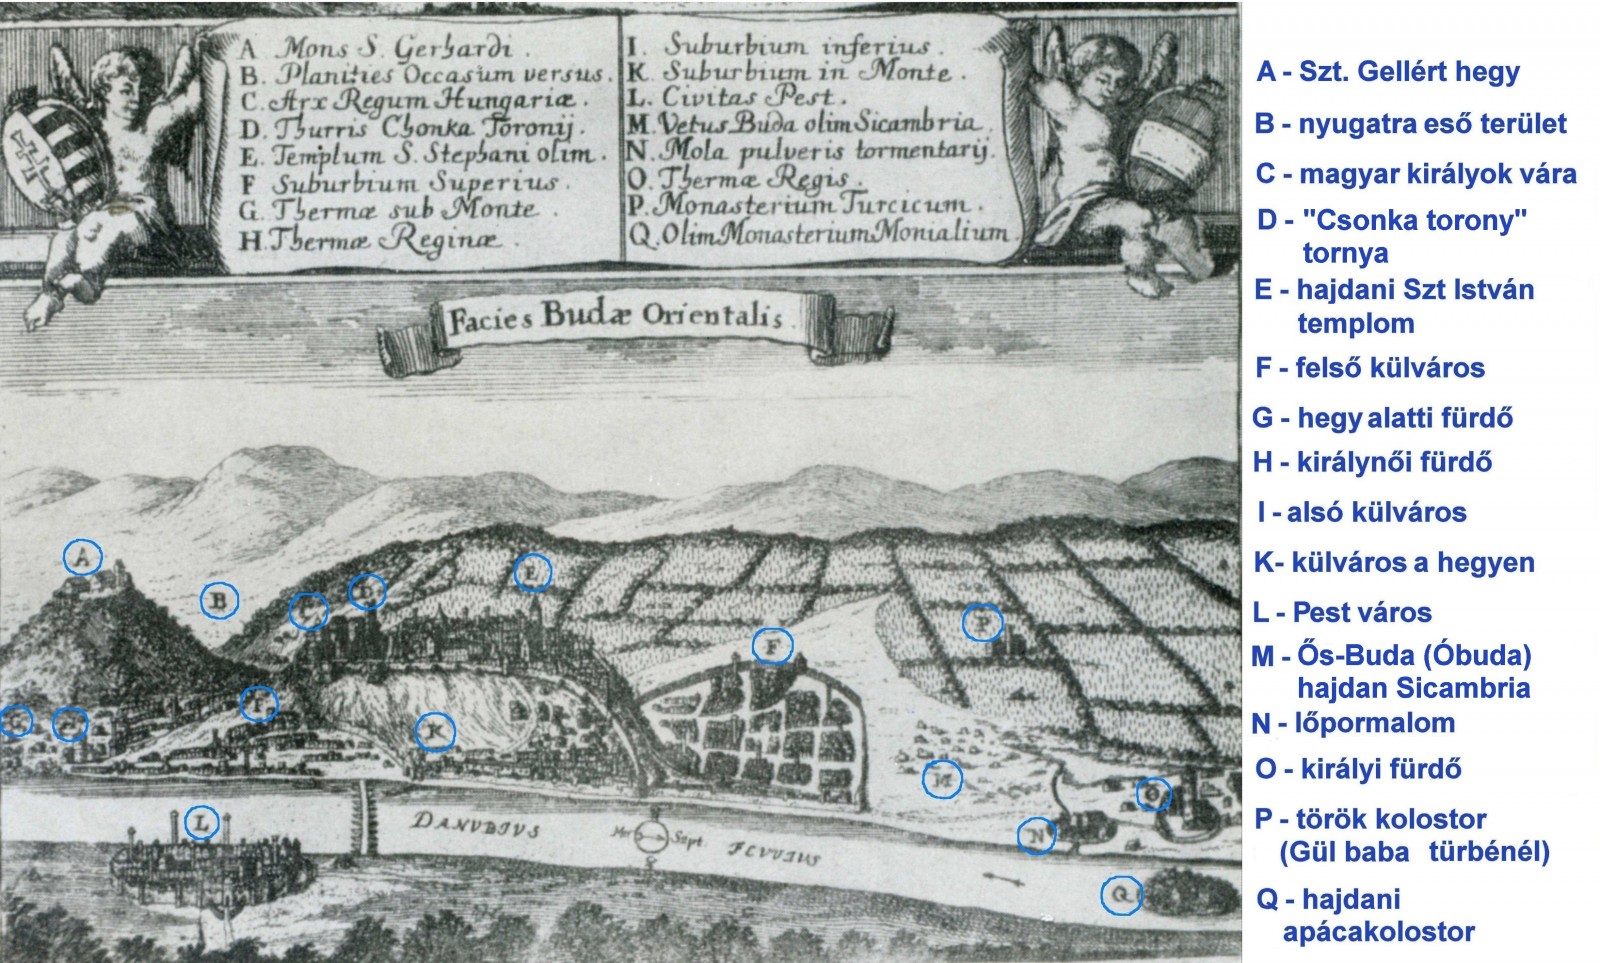 A Mons S. Gerhardi.
B. Planities Occasum versus.
C. Arx Regum Hungariæ.
D. Thurris Chonka Toronij.
E. Templum S. Stephani olim.
F Suburbium Superius.
G. Thermæ sub Monte.
H. Thermæ Reginæ.
I. Suburbium inferius.
K. Suburbium in Monte.
L. Civitas Pest.
M. Vetus Buda olim Sicambria.
N. Mola pulveris tormentarij.
O. Thermæ Regis.
P. Monasterium Turcicum.
Q. Olim Monasterium Monialium
Facies Budæ Orientalis.
A
B
C
F
P
K
M
L
N
O
Q
DANUBIUS
Mer
Sept.
FLUVIUS
A - Szt. Gellért hegy
B - nyugatra eső terület
C - magyar királyok vára
D - "Csonka torony"
tornya
E - hajdani Szt István
templom
F - felső külváros
G - hegy alatti fürdő
H - királynői fürdő
I - alsó külváros
K- külváros a hegyen
L - Pest város
M - Ős-Buda (Óbuda)
hajdan Sicambria
N - lőpormalom
O - királyi fürdő
P - török kolostor
(Gül baba türbénél)
Q - hajdani
apácakolostor